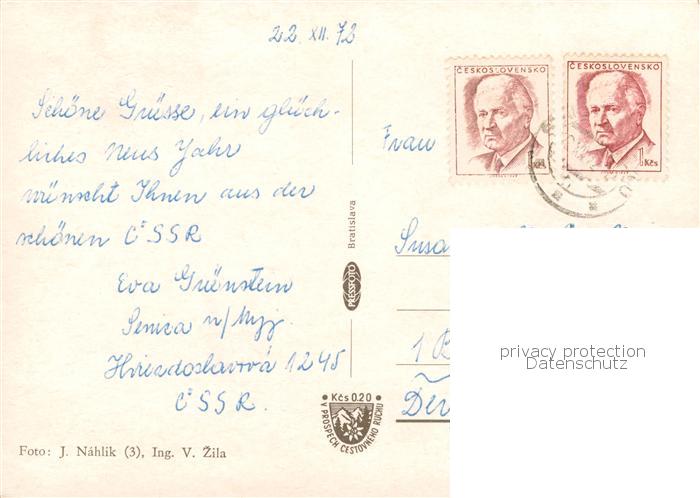 22. XII. 72
Schöne Grüsse, ein glück-
liches Neus Yahr
wünscht Ihnen aus der
schönen ČSSR
Eva Grünstein
Senica n/Myj.
1245
ČSSR.
Foto: J. Náhlik (3), Ing. V. Žila
Bratislava
PRESSFOTO
Kčs 0.20
V PROSPECH CESTOVNÉHO RUCHU
ČESKOSLOVENSKO
ČESKOSLOVENSKO
1 Kčs
Frau
Susa
1 B
privacy protection
Datenschutz